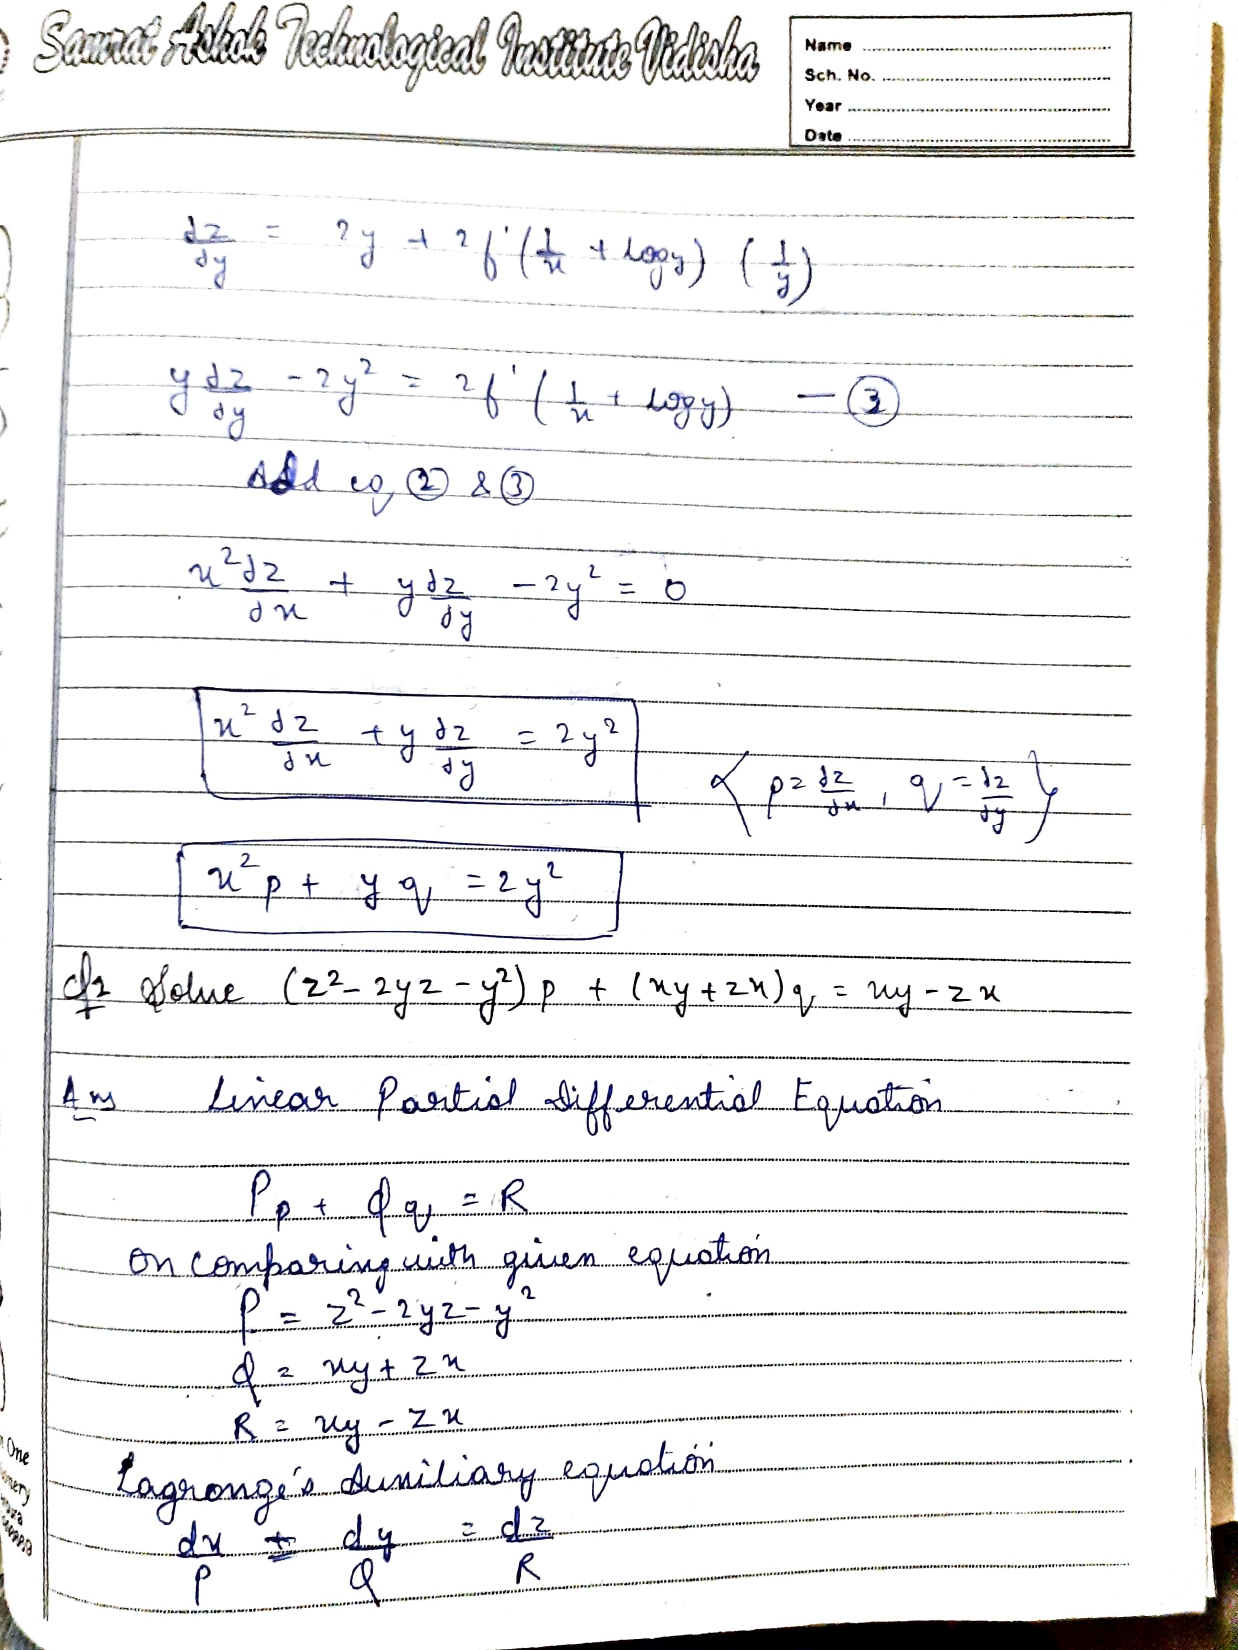 Samrat Ashok Technological Institute Vidisha
Name
Sch. No.
Year
Date
∂z/∂y = 2y + 2f'(1/x + logy) (1/y)
y ∂z/∂y - 2y² = 2f'(1/x + logy) — ③
Add eq ② & ③
x² ∂z/∂x + y ∂z/∂y - 2y² = 0
x² ∂z/∂x + y ∂z/∂y = 2y²
{ p = ∂z/∂x , q = ∂z/∂y }
x²p + yq = 2y²
Q2 Solve (z² - 2yz - y²)p + (xy + zx)q = xy - zx
Ans Linear Partial Differential Equation
Pp + Qq = R
On comparing with given equation
P = z² - 2yz - y²
Q = xy + zx
R = xy - zx
Lagrange's Auxiliary equation
dx/P = dy/Q = dz/R
One